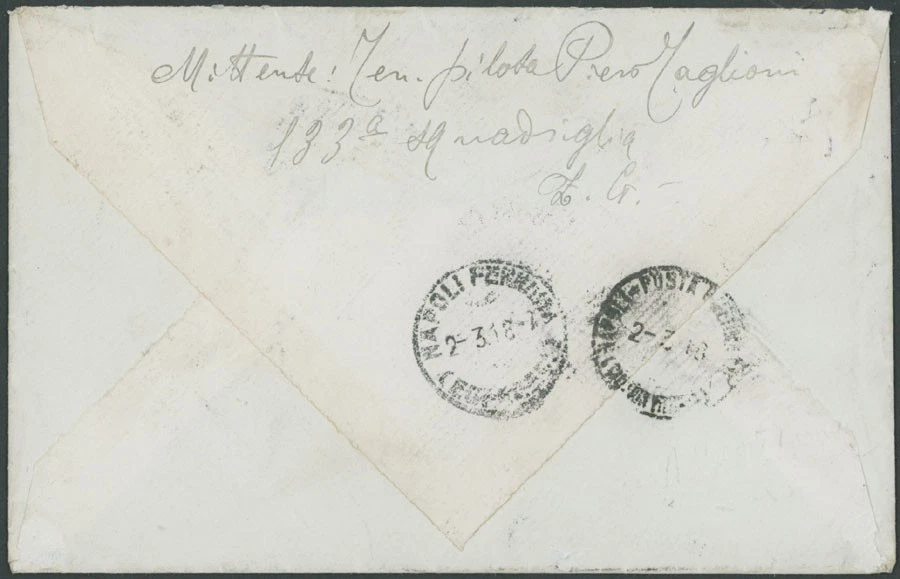 Mittente: Ten. pilota Piero Taglioni
133ª squadriglia
Z. G. -
NAPOLI FERROVIA
2-3.18-
NAPOLI-POSTA
2-3.18